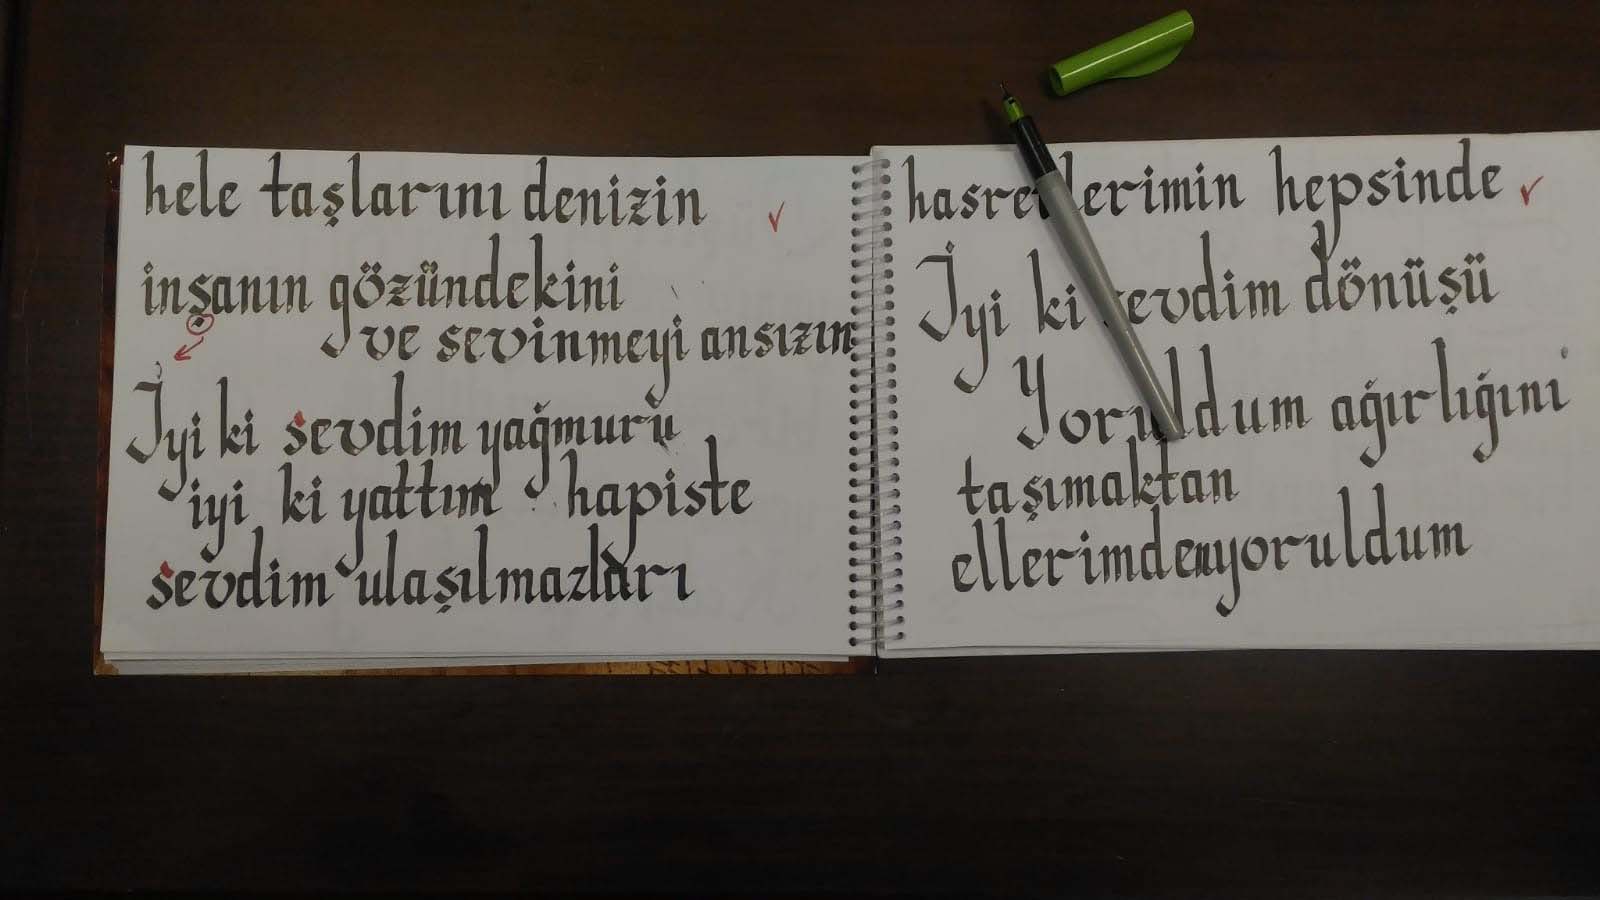 hele taşlarını denizin
inşanın gözündekini
ve sevinmeyi ansızın
İyi ki sevdim yağmuru
iyi ki yattım hapiste
sevdim ulaşılmazları
hasretlerimin hepsinde
İyi ki sevdim dönüşü
Yoruldum ağırlığını
taşımaktan
ellerimden yoruldum